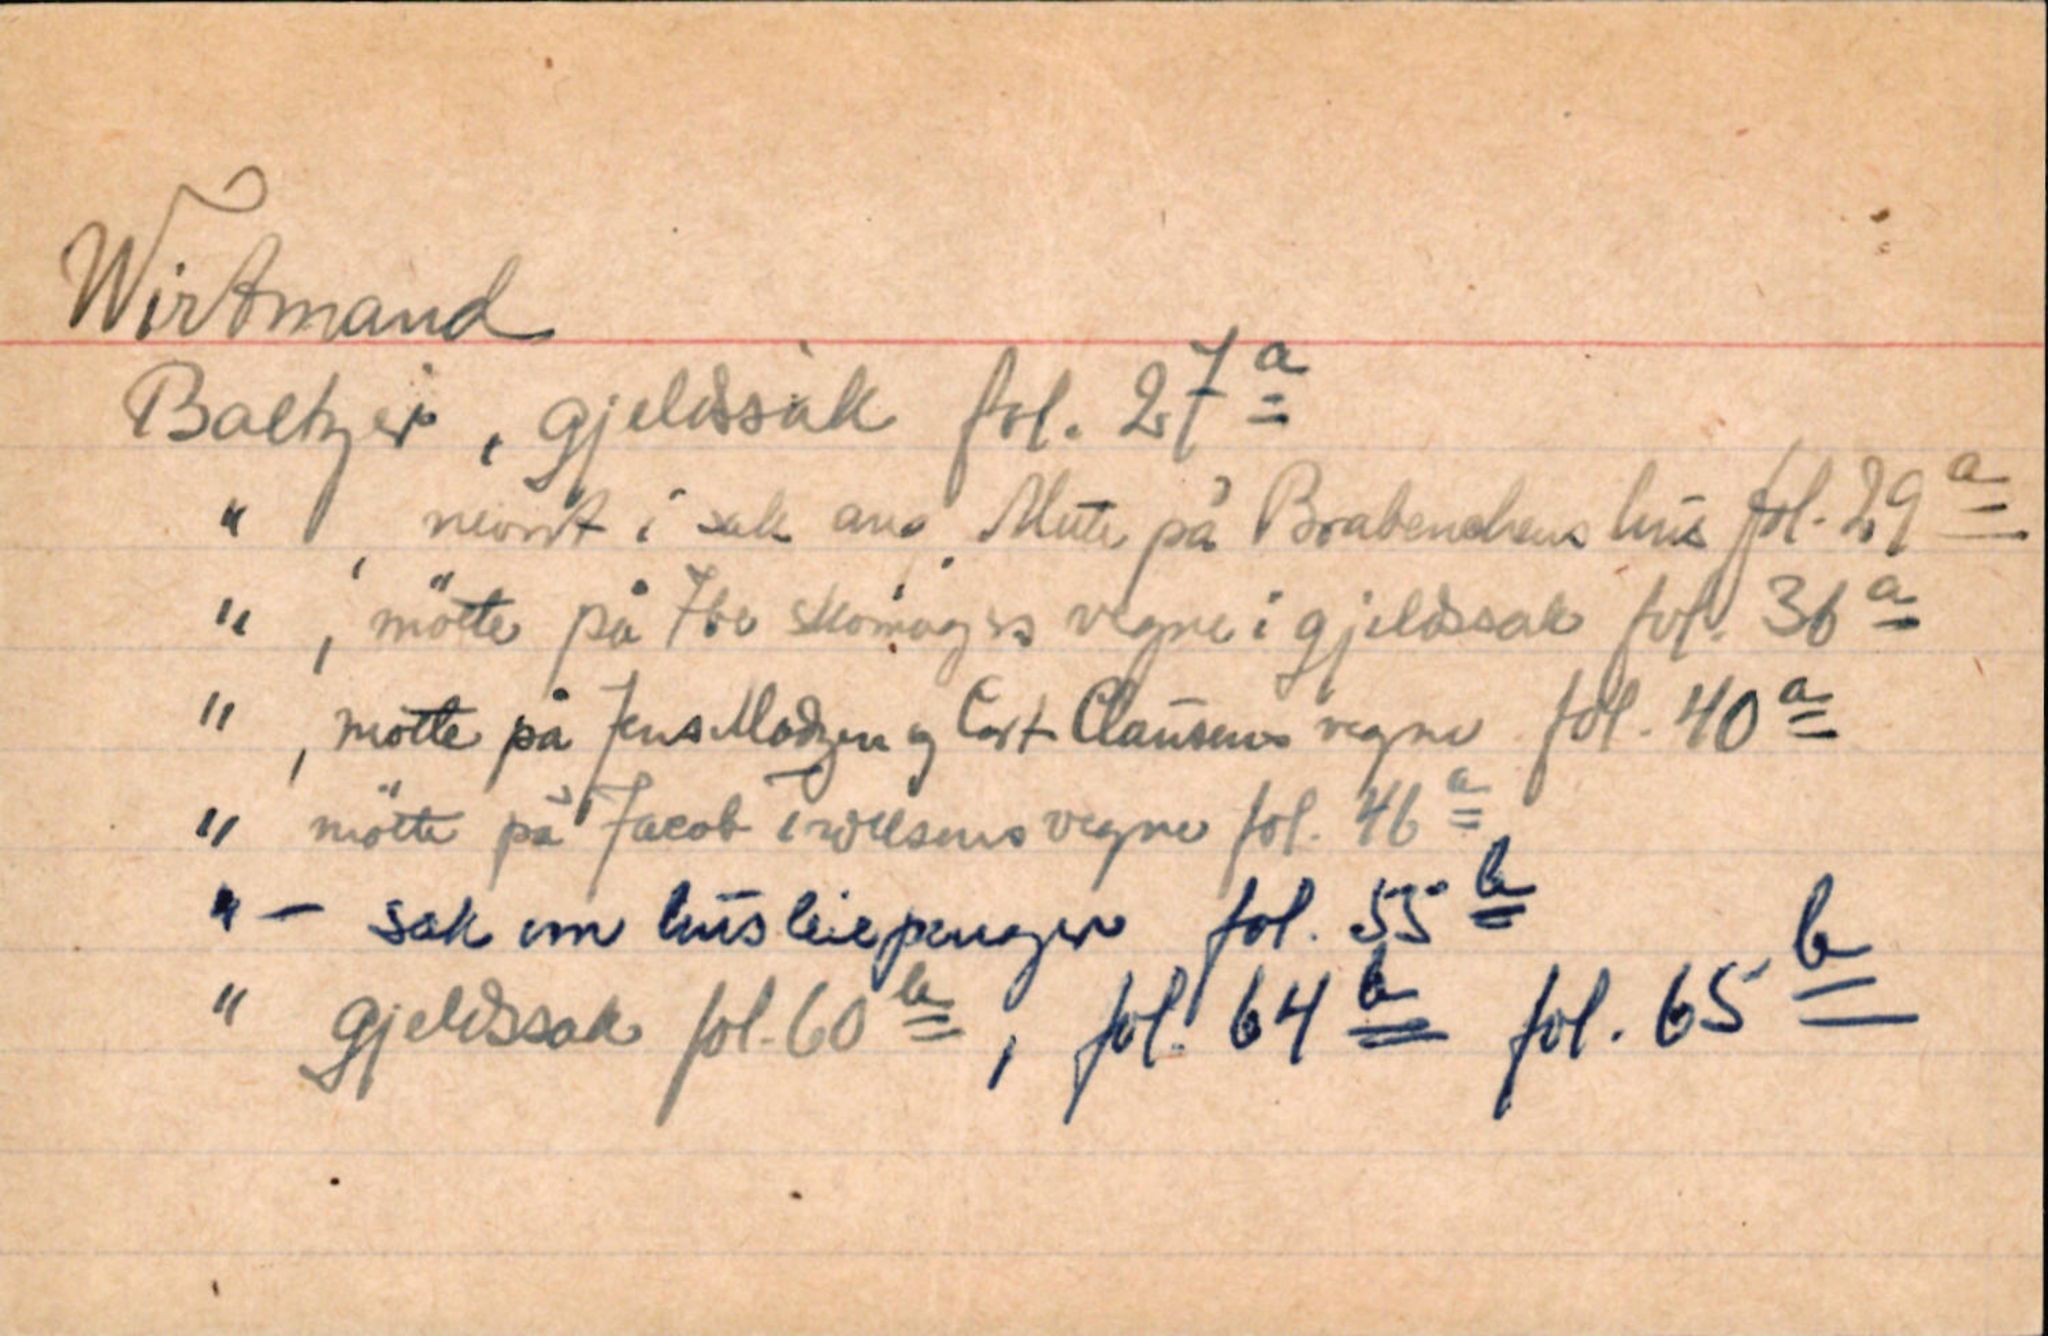 Wirtmand
Baltzer, gjeldssak fol. 27ª
" , nevnt i sak ang. på Brabenders hus fol. 29ª
" , mötte på Ibe skomagers vegne i gjeldssak fol. 36ª
" , mötte på Jens Madzen og Cort Clausens vegne fol. 40ª
" mötte på Jacob vegne fol. 46ª
" – sak om husleiepenger fol. 55ᵇ
" gjeldssak fol. 60ᵇ, fol. 64ᵇ fol. 65ᵇ